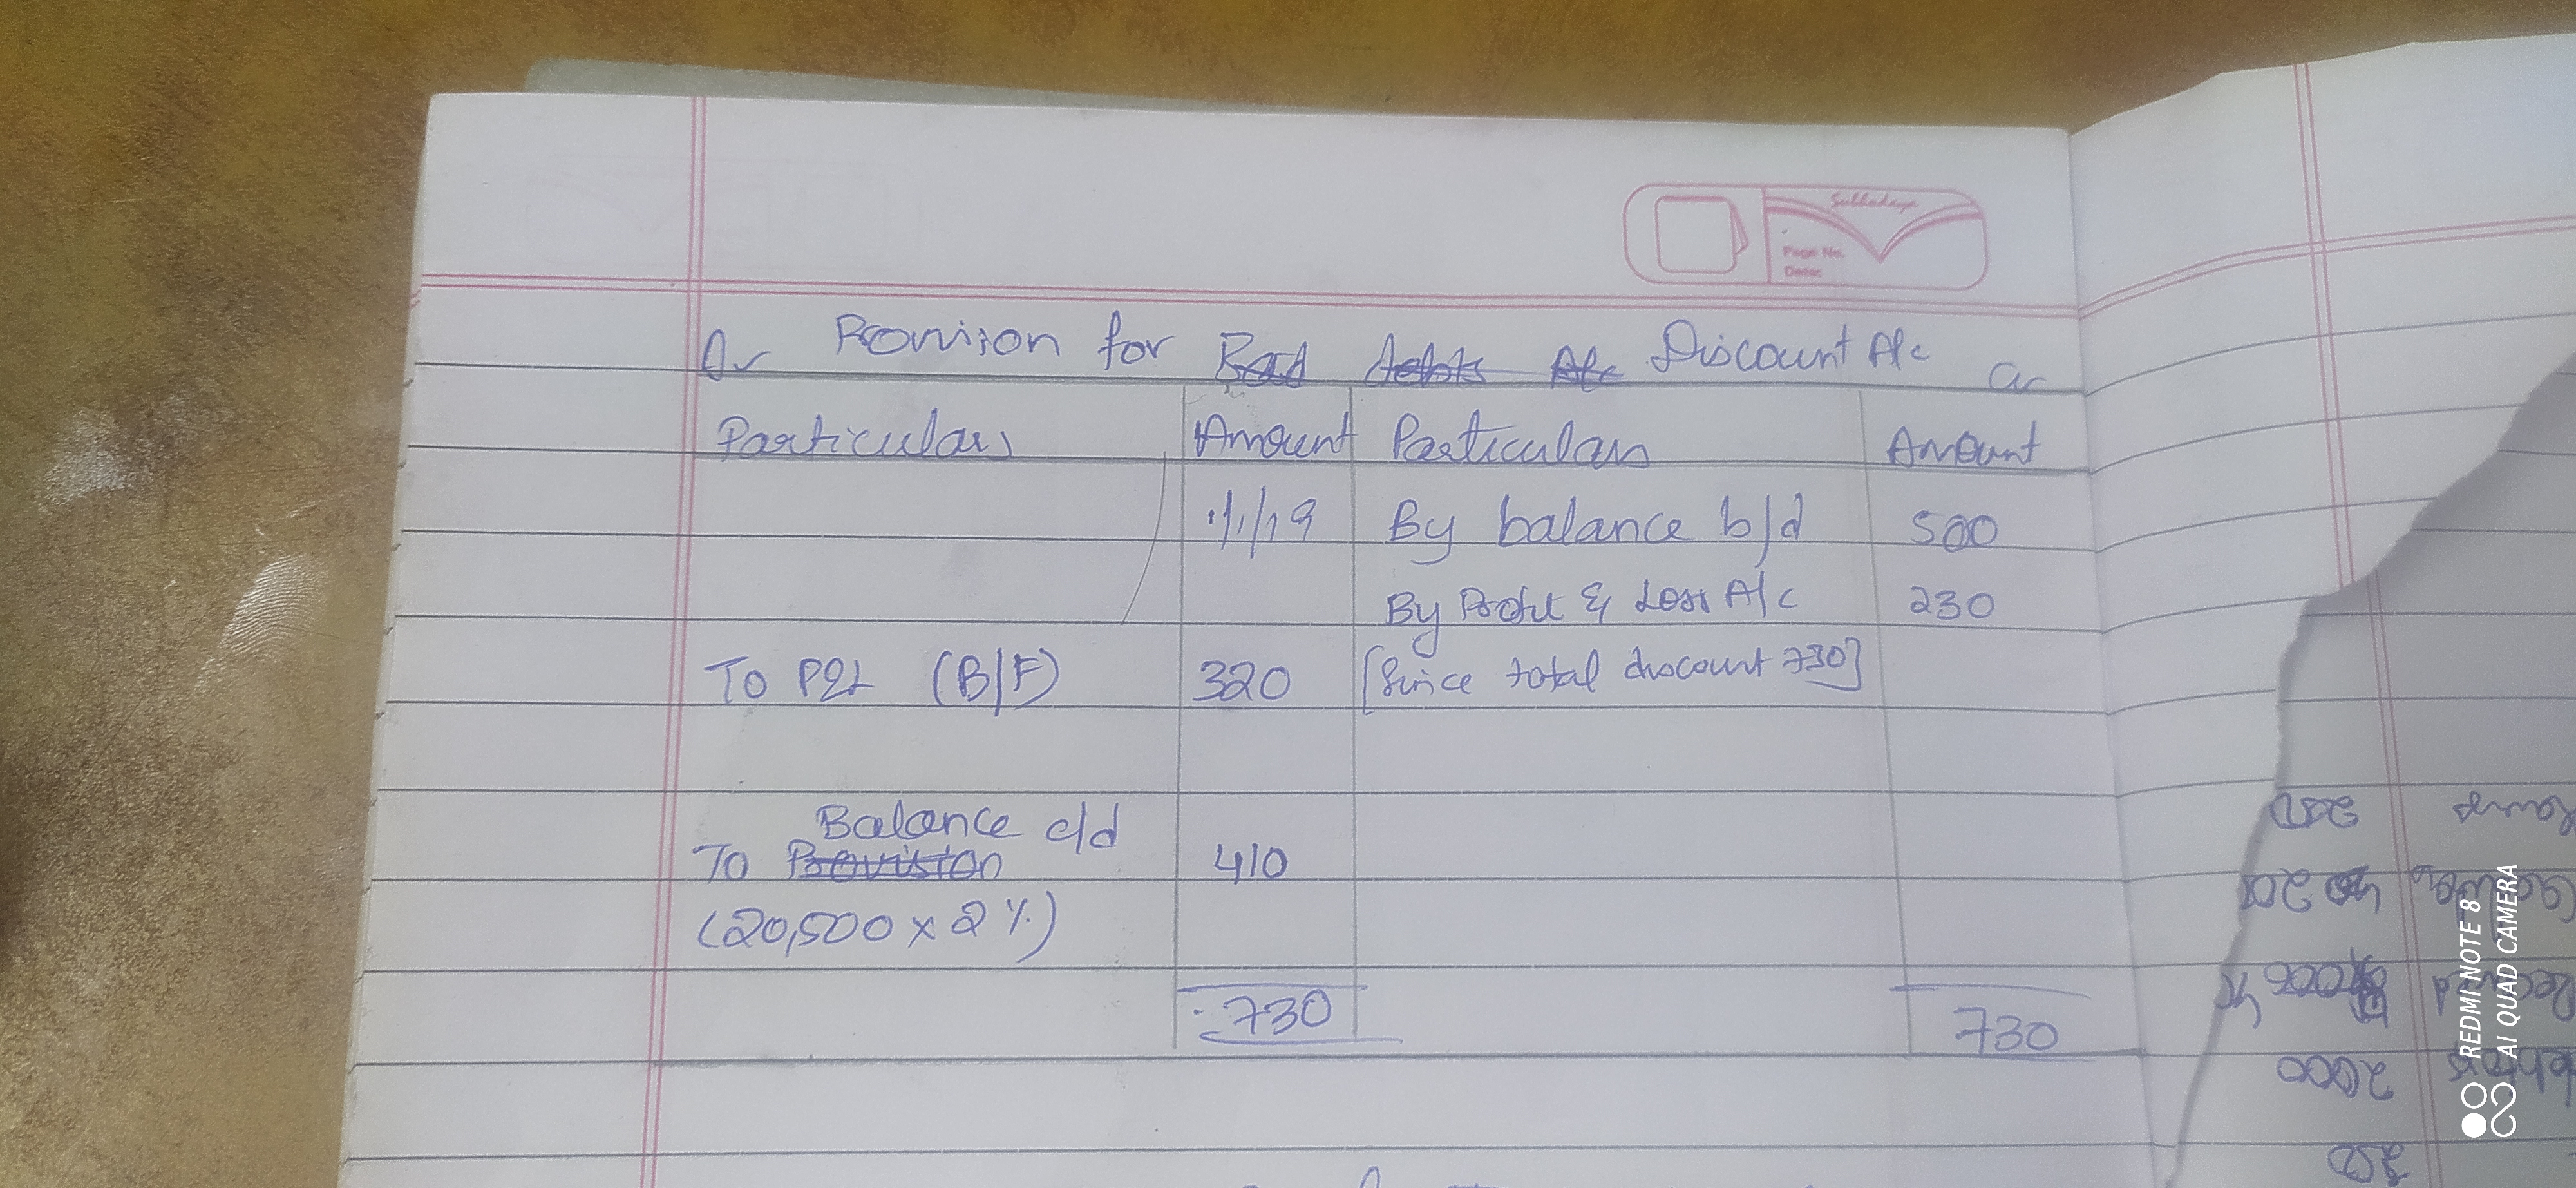 Subhadaya
Page No.
Date:
Dr Provision for Bad debts A/c Discount A/c Cr
Particulars Amount Particulars Amount
1/1/19 By balance b/d 500
By Profit & Loss A/c 230
To P&L (B/F) 320 [Since total discount 730]
Balance c/d
To Provision 410
(20,500 x 2%)
730 730
250
200
2000
250
REDMI NOTE 8
AI QUAD CAMERA